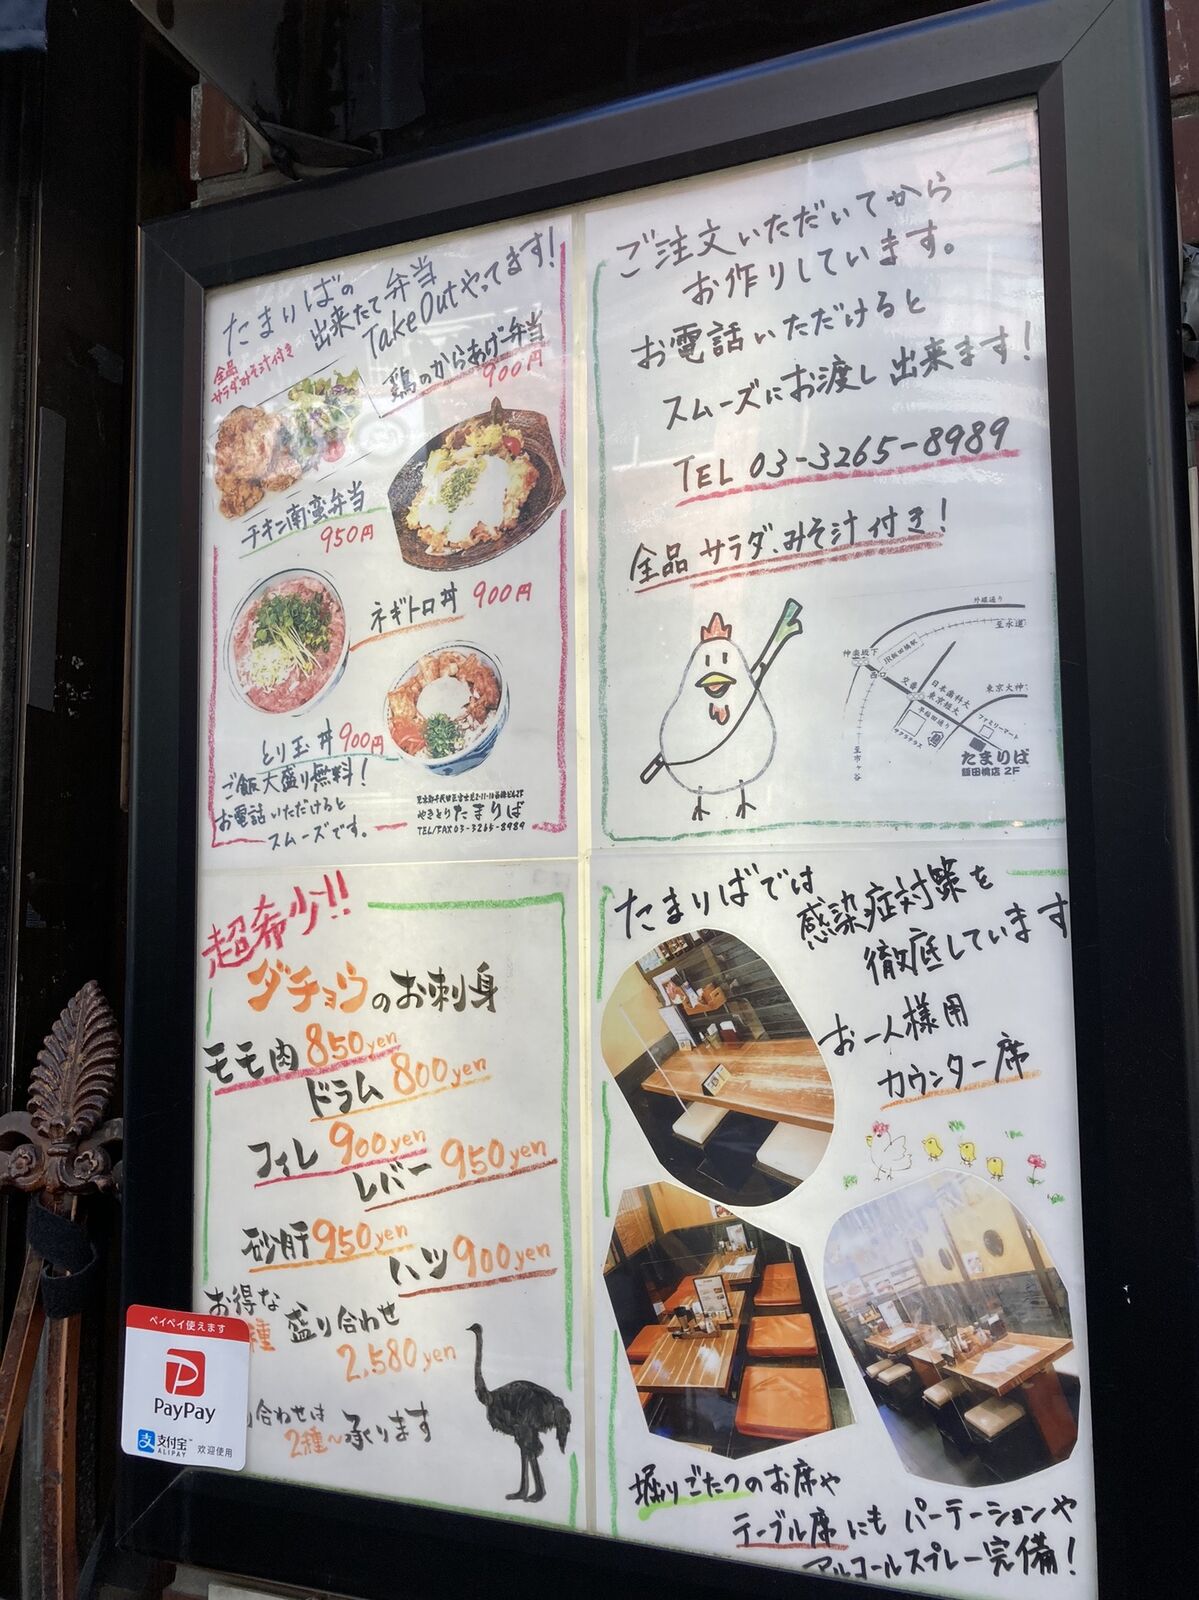 たまりばの
出来たて弁当
TakeOutやってます!
全品
サラダ、みそ汁付き
鶏のからあげ弁当
900円
チキン南蛮弁当
950円
ネギトロ丼 900円
とり玉丼 900円
ご飯大盛り無料!
お電話いただけると
スムーズです。
やきとりたまりば
TEL/FAX 03-3265-8989
ご注文いただいてから
お作りしています。
お電話いただけると
スムーズにお渡し出来ます!
TEL 03-3265-8989
全品 サラダ、みそ汁付き!
外堀通り
至水道
神楽坂下
JR飯田橋駅
交番
日本歯科大
東京大神
早稲田通り
ファミリーマート
サクラテラス
至市ヶ谷
たまりば
飯田橋店 2F
超希少!!
ダチョウのお刺身
モモ肉 850yen
ドラム 800yen
フィレ 900yen
レバー 950yen
砂肝 950yen
ハツ 900yen
お得な
種 盛り合わせ
2,580yen
合わせは
2種〜承ります
ペイペイ使えます
PayPay
支付宝
ALIPAY
欢迎使用
たまりばでは
感染症対策を
徹底しています
お一人様用
カウンター席
掘りごたつのお席や
テーブル席にも パーテーションや
アルコールスプレー完備!